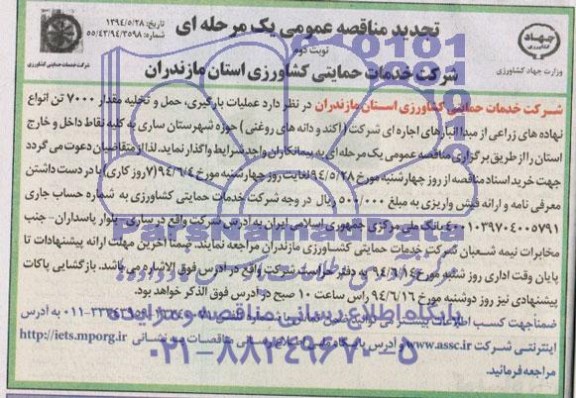 تجدید مناقصه عمومی یک مرحله ای
تاریخ: ۱۳۹۴/۵/۲۸
شماره: ۵۵/۴۲/۹۴/۲۵۹۸
نوبت دوم
جهاد
وزارت جهاد کشاورزی
شرکت خدمات حمایتی کشاورزی استان مازندران
شرکت خدمات حمایتی کشاورزی
شرکت خدمات حمایتی کشاورزی استان مازندران در نظر دارد عملیات بارگیری، حمل و تخلیه مقدار ۷۰۰۰ تن انواع
نهاده های زراعی از مبدا انبارهای اجاره ای شرکت (اکند و دانه های روغنی) حوزه شهرستان ساری به کلیه نقاط داخل و خارج
استان را از طریق برگزاری مناقصه عمومی یک مرحله ای به پیمانکاران واجد شرایط واگذار نماید. لذا از متقاضیان دعوت می گردد
جهت خرید اسناد مناقصه از روز چهارشنبه مورخ ۹۴/۵/۲۸ لغایت روز چهارشنبه مورخ ۹۴/۶/۴ (۷ روز کاری) با در دست داشتن
معرفی نامه و ارائه فیش واریزی به مبلغ ۵۰۰/۰۰۰ ریال در وجه شرکت خدمات حمایتی کشاورزی به شماره حساب جاری
بانک ملی مرکزی جمهوری اسلامی ایران به آدرس شرکت واقع در ساری - بلوار پاسداران - جنب
مخابرات نیمه شعبان شرکت خدمات حمایتی کشاورزی مازندران مراجعه نمایند. ضمنا آخرین مهلت ارائه پیشنهادات تا
پایان وقت اداری روز شنبه مورخ ۹۴/۶/۱۴ به دفتر حراست شرکت واقع در آدرس فوق الاشاره می باشد. بازگشایی پاکات
پیشنهادی نیز روز دوشنبه مورخ ۹۴/۶/۱۶ راس ساعت ۱۰ صبح در آدرس فوق الذکر خواهد بود.
ضمناً جهت کسب اطلاعات بیشتر می توانید ۰۱۱ به آدرس
اینترنتی شرکت www.assc.ir و آدرس پایگاه ملی اطلاع رسانی مناقصات به نشانی http://iets.mporg.ir
مراجعه فرمائید.
ParsNamadData
پایگاه اطلاع رسانی مناقصه و مزایده
۰۲۱-۸۸۳۴۹۶۷۰-۵